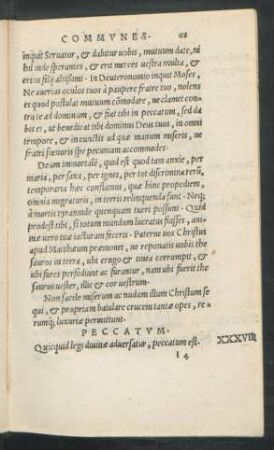 COMMVNES. 68
inquit Seruator, & dabitur uobis, mutuum date, ni
hil inde sperantes, & erit merces uestra multa, &
eritis filij altissimi. In Deuteronomio inquit Moses,
Ne auertas oculos tuos à paupere fratre tuo, nolens
ei quod postulat mutuum cōmodare, ne clamet contra
te ad dominum, & fiat tibi in peccatum, sed da
bis ei, ut benedicat tibi dominus Deus tuus, in omni
tempore, & incunctis ad quæ manum miseris, ne
fratri fœnoris spe pecuniam accommodes.
Deam immortalē, quid est quod tam anxie, per
maria, per saxa, per ignes, per tot discrimina rerū,
temporaria hæc constamus, quæ hinc propediem,
omnia migraturis, in terris relinquenda sunt. Neq;
à mortis tyrannide quenquam tueri possunt. Quid
prodest tibi, si totum mundum lucratus fuisses, ani-
mæ uero tuæ iacturam feceris. Paterne uos Christus
apud Matthæum præmonet, ne reponatis uobis the
sauros in terra, ubi erugo & tinea corrumpit, &
ubi fures perfodiunt ac furantur, nam ubi fuerit the
saurus uester, illic & cor uestrum.
Non facile miserum ac nudam illum Christum se
qui, & propriam baiulare crucem tantæ opes, re-
rumq; luxuriæ permittunt.
PECCATVM.
Quicquid legi diuinæ aduersatur, peccatum est. XXXVIII
I 4